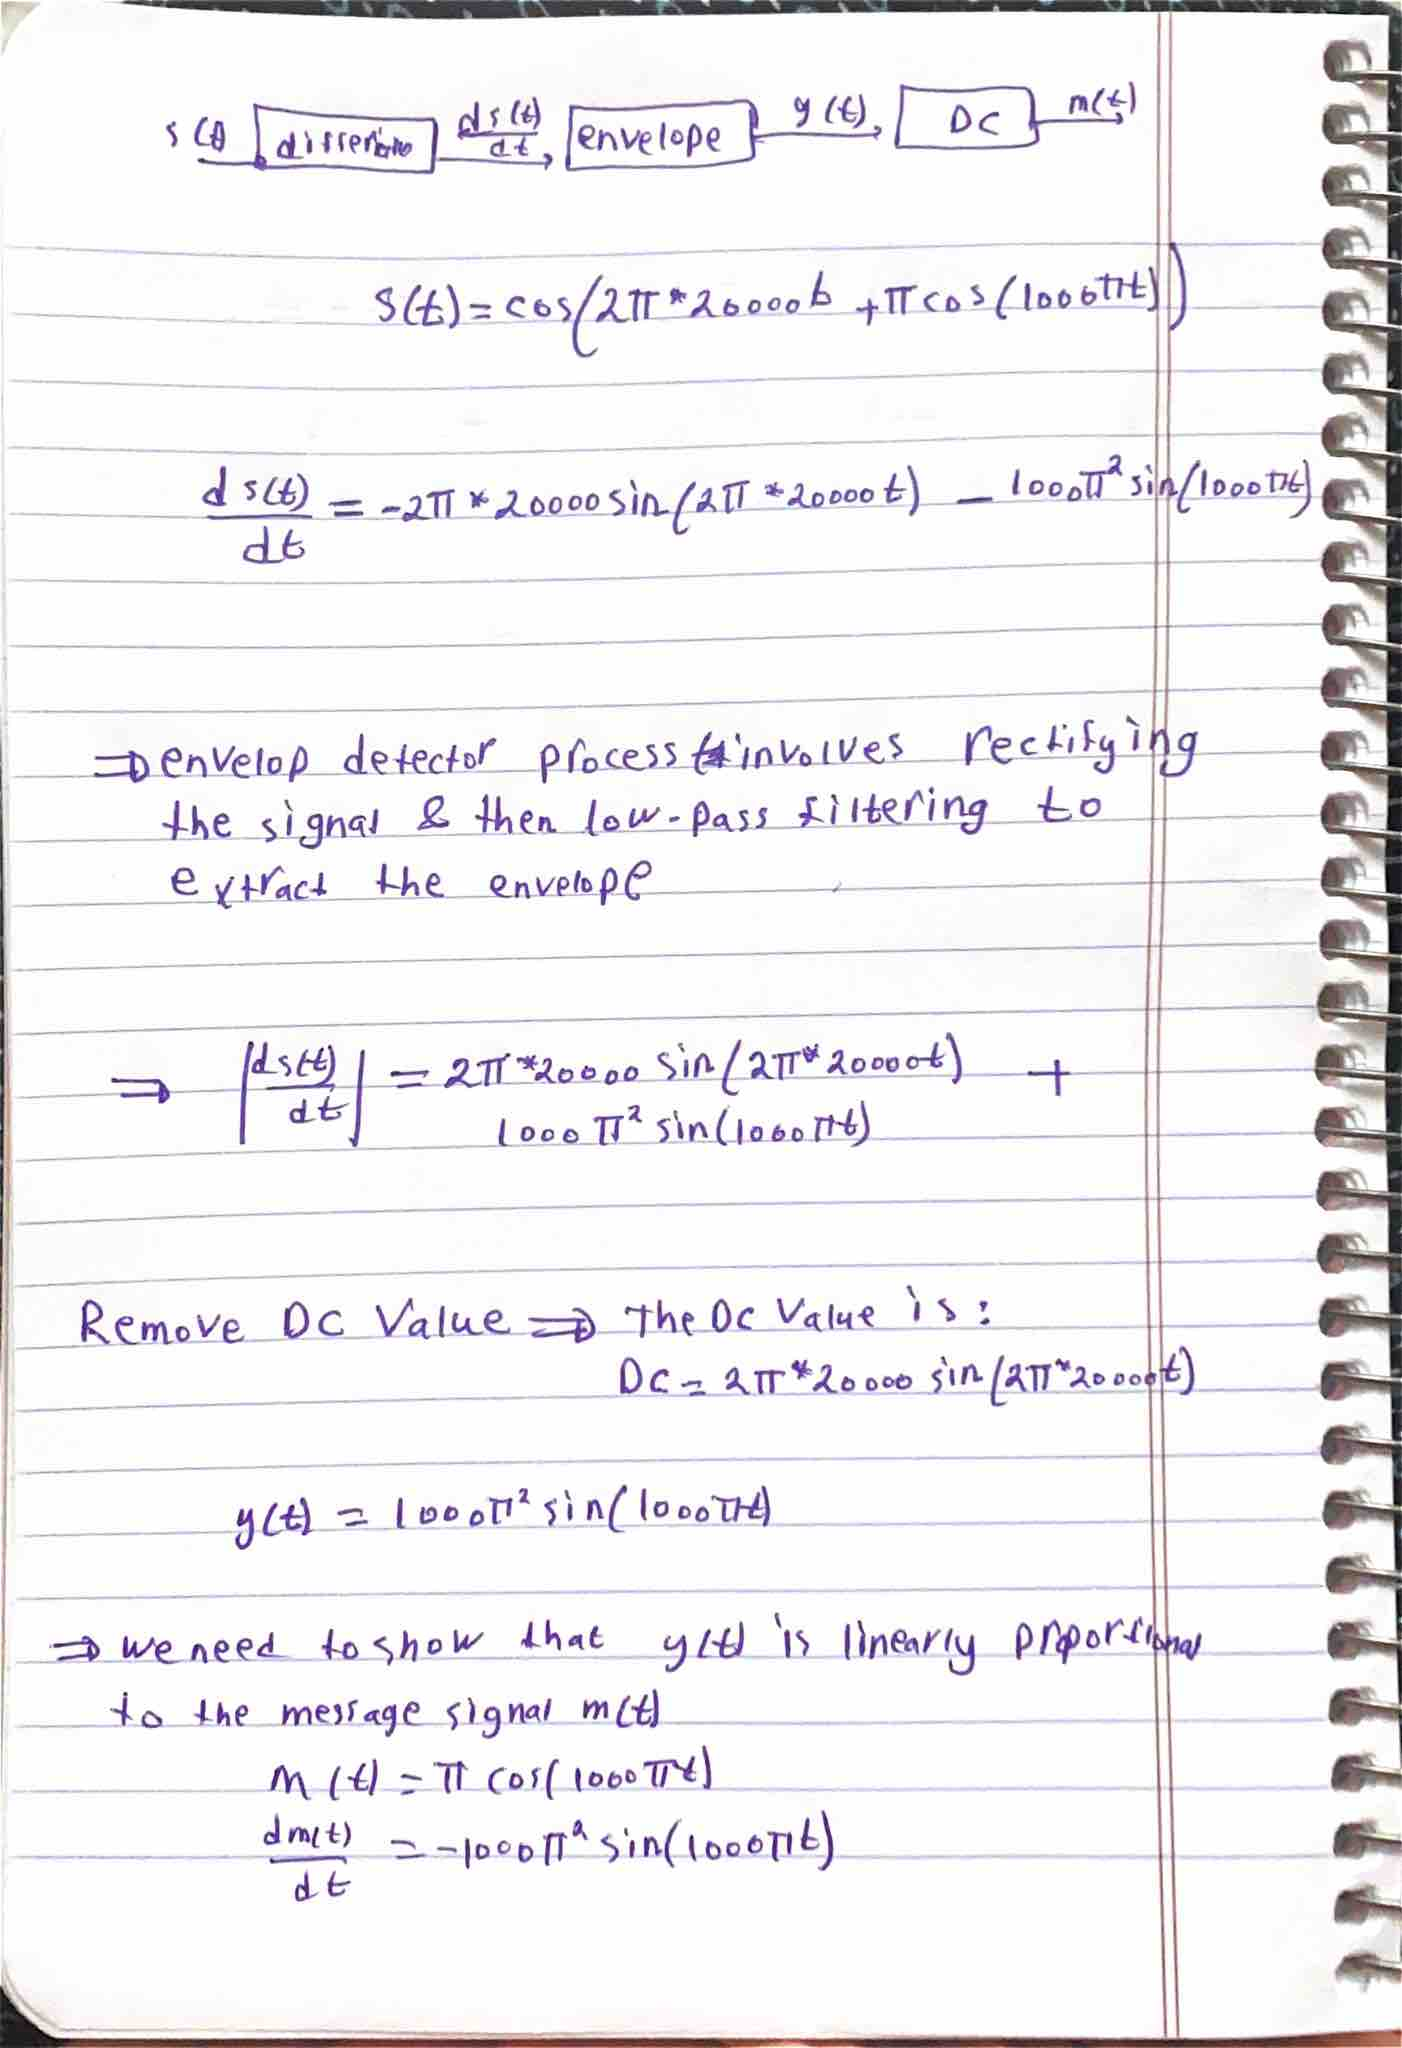 s(t) differentiato ds(t)/dt envelope y(t) DC m(t)
S(t) = cos(2π*20000t + π cos(1000πt))
ds(t)/dt = -2π*20000 sin(2π*20000t) - 1000π² sin(1000πt)
⇒ envelop detector process involves rectifying
the signal & then low-pass filtering to
extract the envelope
⇒ |ds(t)/dt| = 2π*20000 sin(2π*20000t) +
1000π² sin(1000πt)
Remove DC Value ⇒ The DC Value is:
DC = 2π*20000 sin(2π*20000t)
y(t) = 1000π² sin(1000πt)
⇒ we need to show that y(t) is linearly proportional
to the message signal m(t)
m(t) = π cos(1000πt)
dm(t)/dt = -1000π² sin(1000πt)